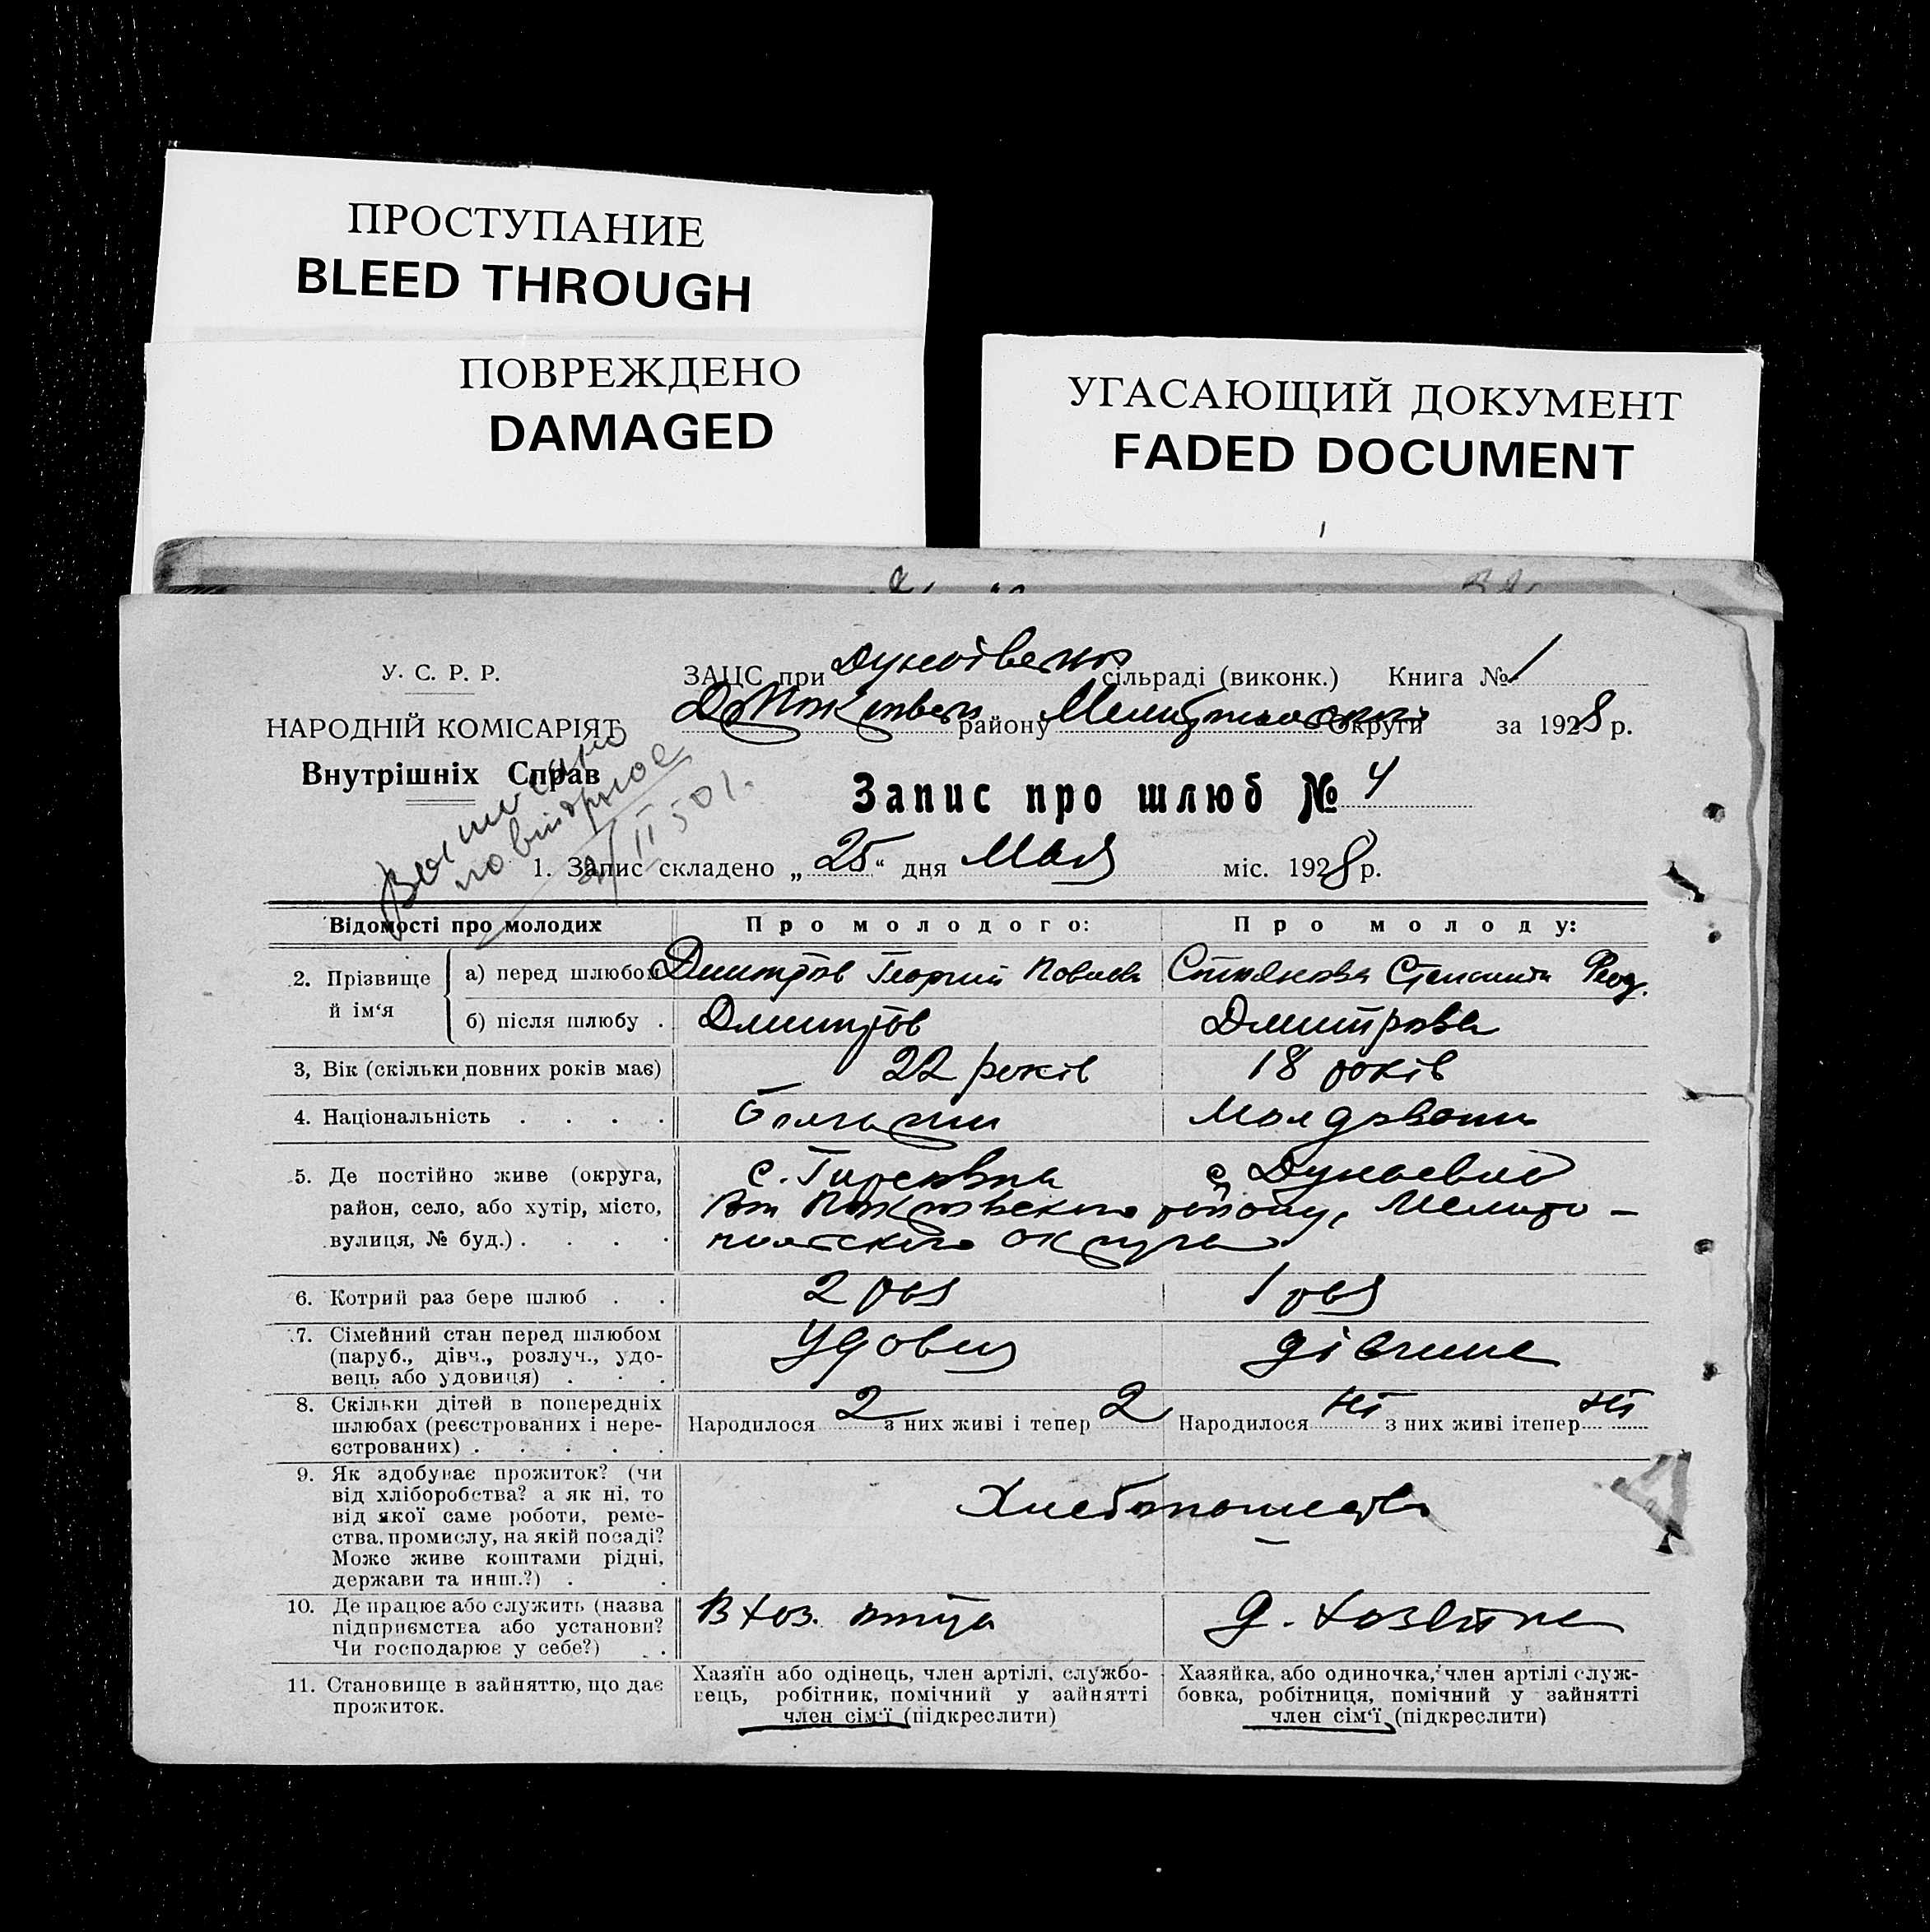 ПРОСТУПАНИЕ
BLEED THROUGH
ПОВРЕЖДЕНО
DAMAGED
УГАСАЮЩИЙ ДОКУМЕНТ
FADED DOCUMENT
У. С. Р. Р.
НАРОДНІЙ КОМІСАРІЯТ
Внутрішніх Справ
ЗАЦС при сільраді (виконк.) Книга № 1
району округи за 1928 р.
Запис про шлюб № 4
1. Запис складено „25“ дня Мая міс. 1928 р.
Відомості про молодих Про молодого: Про молоду:
2. Прізвище й ім‘я
а) перед шлюбом Дмитров Георгий Стоянова
б) після шлюбу . Дмитров Дмитрова
3, Вік (скільки повних років має) 22 років 18 років
4. Національність . . . . Молдован
5. Де постійно живе (округа,
район, село, або хутір, місто,
вулиця, № буд.) . . . .
с.
с.
району, Мелито-
польского округа
6. Котрий раз бере шлюб . . 2 раз 1 раз
7. Сімейний стан перед шлюбом
(паруб., дівч., розлуч., удо-
вець або удовиця) . . .
Удовец
8. Скільки дітей в попередніх
шлюбах (реєстрованих і нере-
єстрованих) . . . . .
Народилося 2 з них живі і тепер 2
Народилося ні з них живі ітепер ні
9. Як здобуває прожиток? (чи
від хліборобства? а як ні, то
від якої саме роботи, реме-
ства, промислу, на якій посаді?
Може живе коштами рідні,
держави та инш.?) . .
10. Де працює або служить (назва
підприємства або установи?
Чи господарює у себе?) . .
В хоз. отца
11. Становище в зайняттю, що дає
прожиток.
Хазяїн або одінець, член артілі, службо-
вець, робітник, помічний у зайнятті
член сім‘ї (підкреслити)
Хазяйка, або одиночка, член артілі служ-
бовка, робітниця, помічний у зайнятті
член сім‘ї (підкреслити)